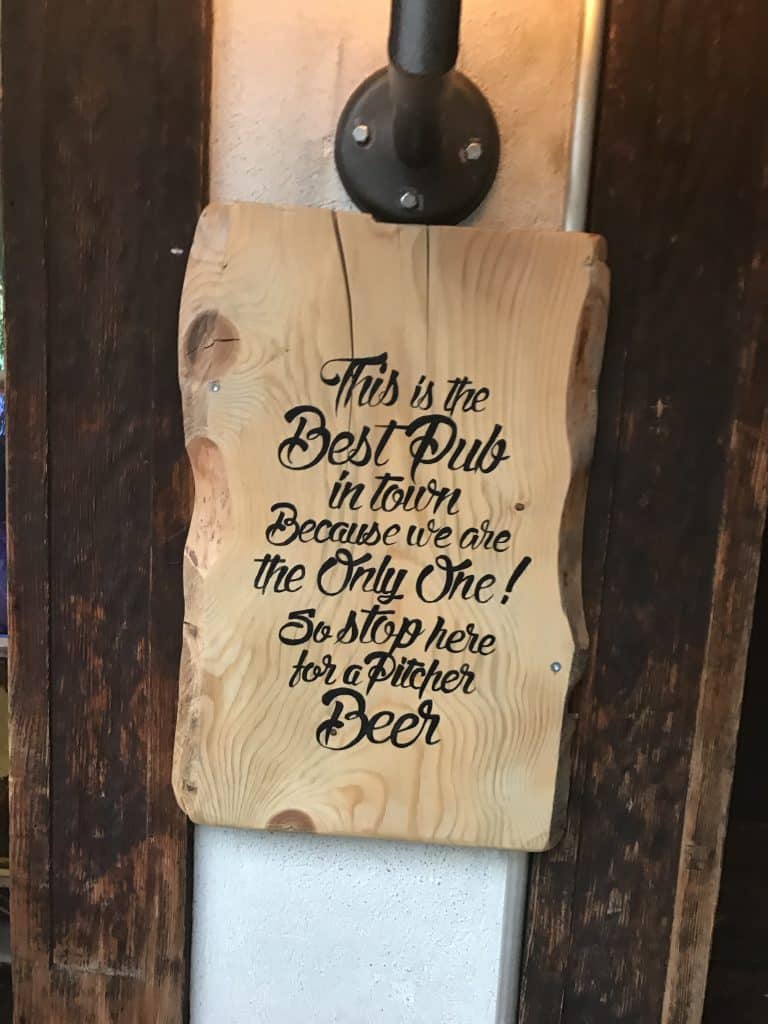 This is the
Best Pub
in town
Because we are
the Only One!
So stop here
for a Pitcher
Beer